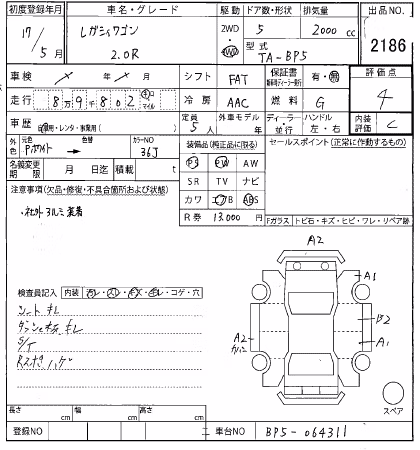 初度登録年月 車名・グレード 駆動 ドア数・形状 排気量 出品NO.
17/5月 レガシィワゴン 2.0R 2WD 4WD 5 2000cc 2186
型式 TA-BP5
車検 シフト FAT 保証書 有・無 評価点 4
走行 8万9千802 キロ マイル 冷房 AAC 燃料 G 内装評価 C
車歴 自家用・レンタ・事業用( ) 定員 5人 外車モデル 年 ディーラー・並行 ハンドル 左・右
外色 元色 Pホワイト 色替 カラーNO 36J 装備品(純正品に限る) セールスポイント(正常に作動するもの)
名義変更期限 月 日迄 積載 t PS PW AW
注意事項(欠品・修復・不具合箇所および状態) SR TV ナビ
カワ エアB ABS
R券 13,000円 Fガラス トビ石・キズ・ヒビ・ワレ・リペア跡
A2
A1
検査員記入 内装 汚レ・スレ・キズ・キレ・コゲ・穴
B2
シートキレ
A2
A1
S/T
スペア
長さ cm 幅 cm 高さ cm
登録NO 車台NO BP5-064311